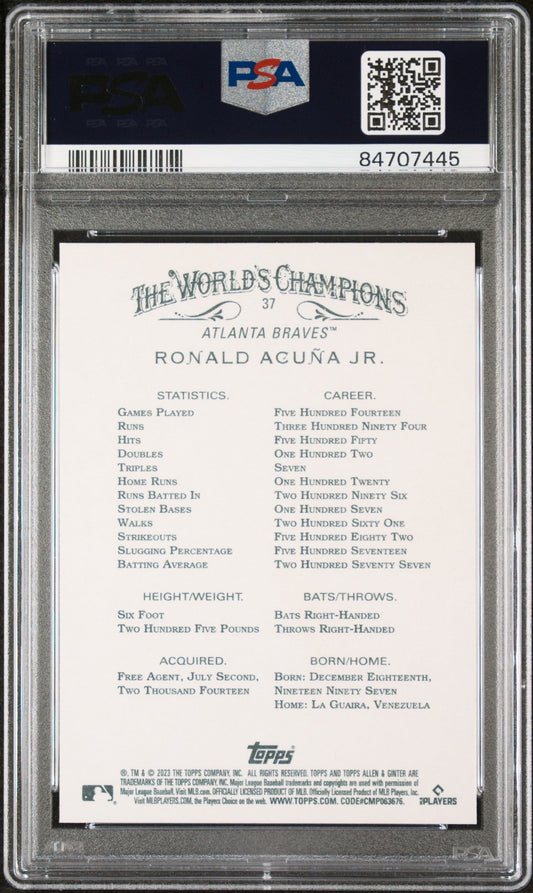 PSA PSA PSA
PSA
PSA PSA PSA
PSA
84707445
THE WORLD'S CHAMPIONS
37
ATLANTA BRAVES™
RONALD ACUÑA JR.
STATISTICS. CAREER.
GAMES PLAYED FIVE HUNDRED FOURTEEN
RUNS THREE HUNDRED NINETY FOUR
HITS FIVE HUNDRED FIFTY
DOUBLES ONE HUNDRED TWO
TRIPLES SEVEN
HOME RUNS ONE HUNDRED TWENTY
RUNS BATTED IN TWO HUNDRED NINETY SIX
STOLEN BASES ONE HUNDRED SEVEN
WALKS TWO HUNDRED SIXTY ONE
STRIKEOUTS FIVE HUNDRED EIGHTY TWO
SLUGGING PERCENTAGE FIVE HUNDRED SEVENTEEN
BATTING AVERAGE TWO HUNDRED SEVENTY SEVEN
HEIGHT/WEIGHT.
SIX FOOT
TWO HUNDRED FIVE POUNDS
BATS/THROWS.
BATS RIGHT-HANDED
THROWS RIGHT-HANDED
ACQUIRED.
FREE AGENT, JULY SECOND,
TWO THOUSAND FOURTEEN
BORN/HOME.
BORN: DECEMBER EIGHTEENTH,
NINETEEN NINETY SEVEN
HOME: LA GUAIRA, VENEZUELA
Topps®
®, TM & © 2023 THE TOPPS COMPANY, INC. ALL RIGHTS RESERVED. TOPPS AND TOPPS ALLEN & GINTER ARE
TRADEMARKS OF THE TOPPS COMPANY, INC. Major League Baseball trademarks and copyrights are used with permission of
Major League Baseball. Visit MLB.com. OFFICIALLY LICENSED PRODUCT OF MLB. Officially Licensed Product of MLB Players, Inc.
Visit MLBPLAYERS.COM, the Players Choice on the web. WWW.TOPPS.COM. CODE#CMP063676.
PLAYERS
PSA